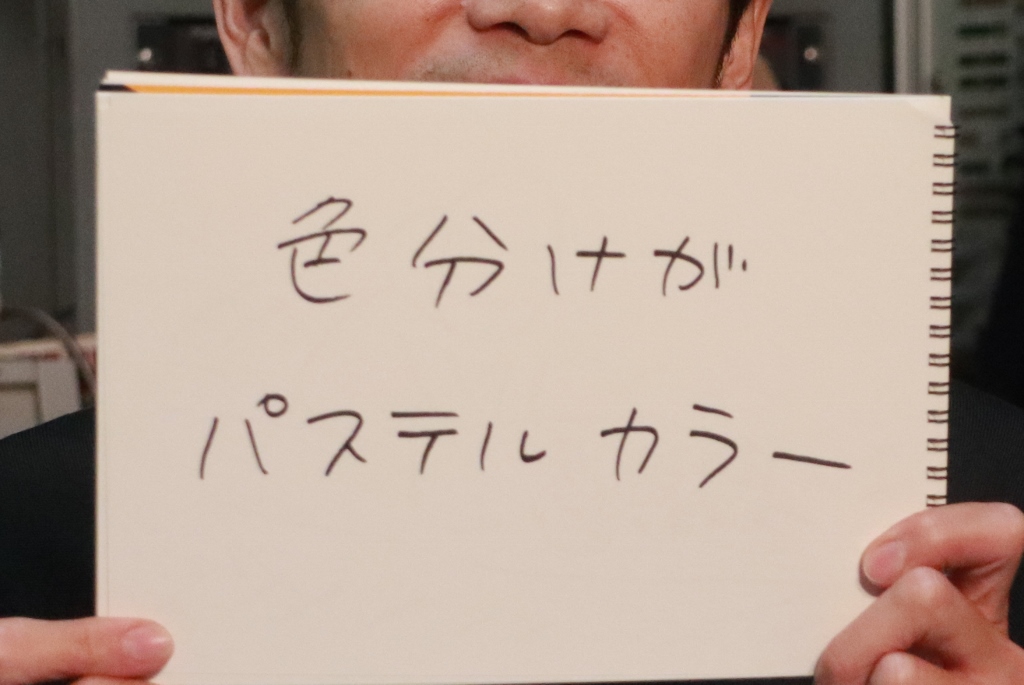 色分けが
パステルカラー